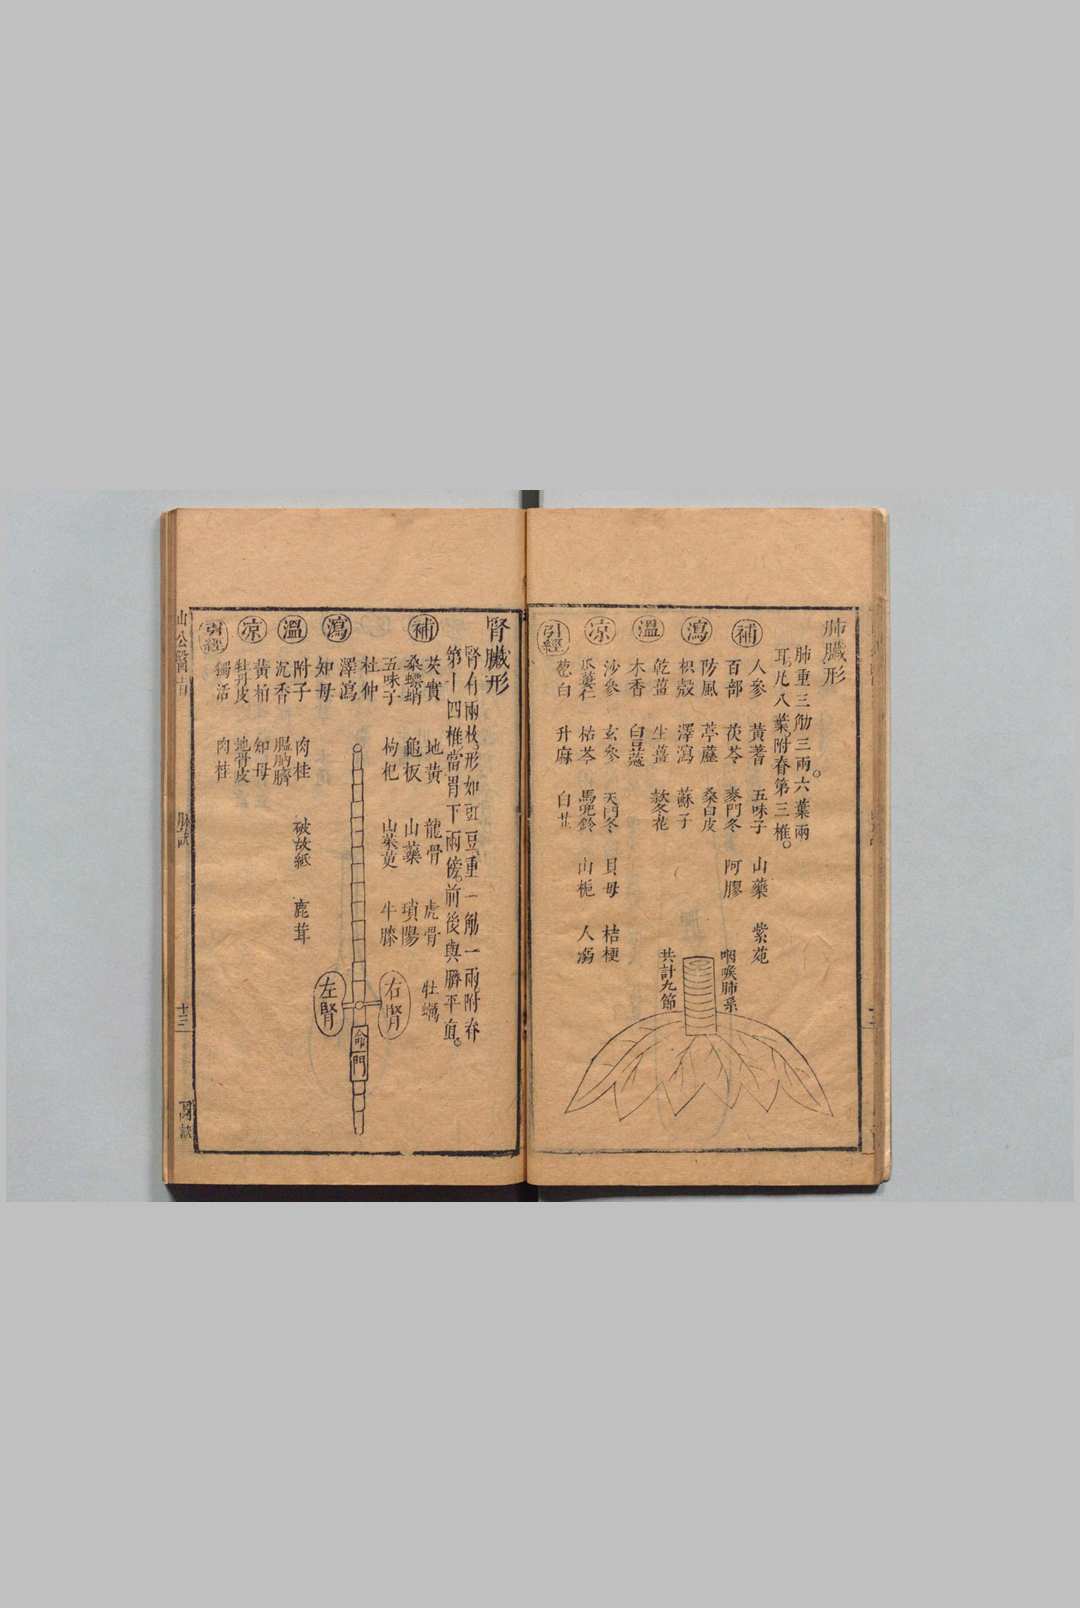 肺臟形
肺重三觔三兩六葉兩
耳凡八葉附脊第三椎
補
人參 黃蓍 五味子 山藥 紫菀
百部 茯苓 麥門冬 阿膠
瀉
防風 葶藶 桑白皮
枳殼 澤瀉 蘇子
溫
乾薑 生薑 款冬花
木香 白荳蔻
凉
沙參 玄參 天門冬 貝母 桔梗
瓜蔞仁 枯芩 馬兜鈴 山梔 人溺
引經
葱白 升麻 白芷
咽喉肺系
共計九節
腎臟形
腎有兩枚形如豇豆重一觔一兩附脊
第十四椎當胃下兩傍前後與臍平直
補
芡實 地黃 龍骨 虎骨 牡蠣
桑螵蛸 龜板 山藥 瑣陽
五味子 枸杞 山茱萸 牛膝
杜仲
瀉
澤瀉
知母
溫
附子 肉桂 破故紙 鹿茸
沉香 膃肭臍
凉
黃柏 知母
牡丹皮 地骨皮
引經
獨活 肉桂
右腎
左腎
命門
脉訣
十三